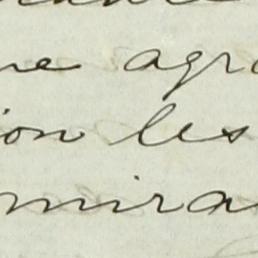 ne agr
ion les
mira